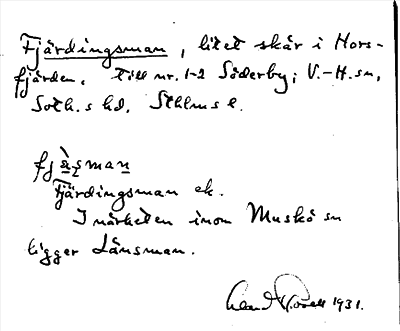 Fjärdingsman, litet skär i Hors-
fjärden. Till nr. 1-2 Söderby; V.-H. sn,
Soth.s hd, Sthlms l.
fjà̤ṣman
Fjärdingsman ek.
I närheten inom Muskö sn
ligger Länsman.
1931.